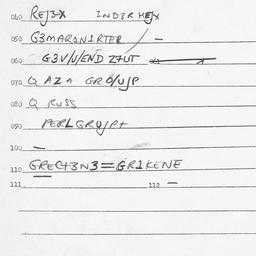 040 REJ3-X IND3R HEJX
050 G3MARANIRTER —
060 G3V/U/END ZTUT 061
070 Q AZA GRO/UJP
080 Q RUSS
090 PERLGRUJP+
100 —
110 GREC+3N3=GRIKENE
111 112 —